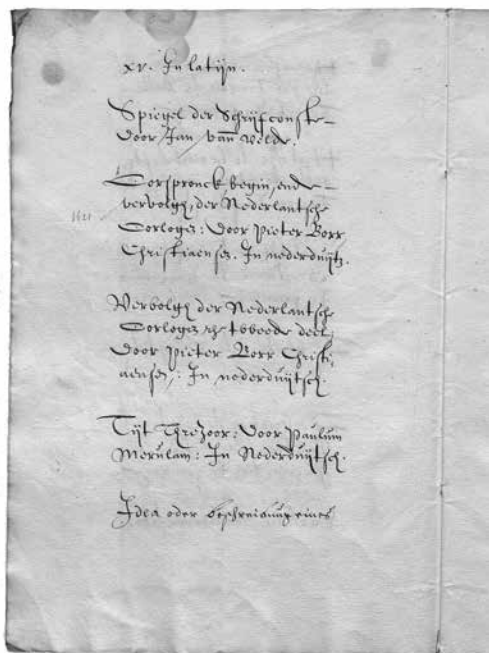 xv. In latijn.
Spiegel der Schrijfconste
Door Jan vann velde.
Oorspronck, begin, ende
vervolgh, der Nederlantsche
1621
Oorloges: Door Pieter Borr
Christiaensz. In nederduijtz.
Vervolgh der Nederlantsche
Oorloges, tweede deel,
Door Pieter Borr Christi,
aensen: In nederduijtsch.
Tijt Threzoor: Door Paulum
Merulam: In Nederduijtsch.
Idea oder beschreibung eines